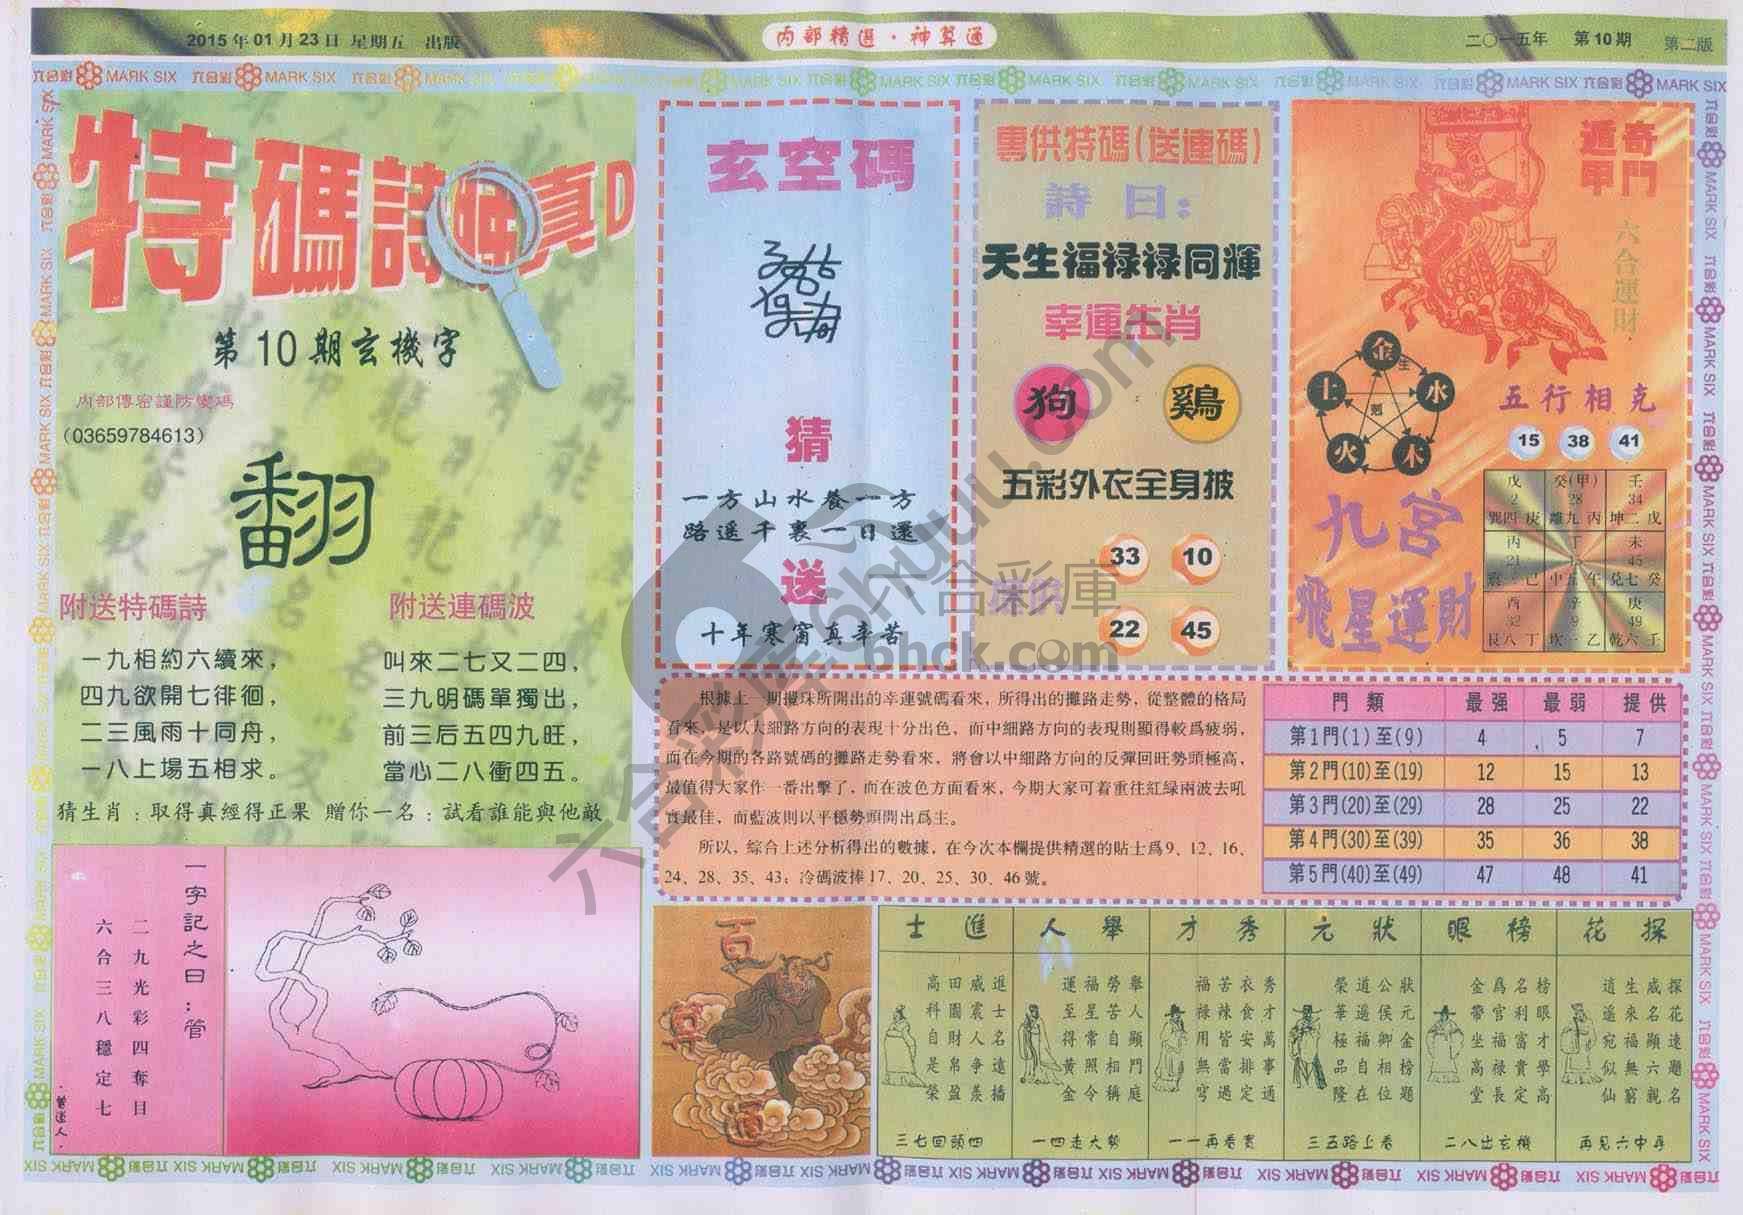 2015年01月23日 星期五 出版
内部精選·神算通
二〇一五年 第10期 第二版
六合彩 MARK SIX
特碼詩
真D
第10期玄機字
內部傳密謹防變碼
(03659784613)
翻
附送特碼詩
一九相約六續來，
四九欲開七徘徊，
二三風雨十同舟，
一八上場五相求。
附送連碼波
叫來二七又二四，
三九明碼單獨出，
前三后五四九旺，
當心二八衝四五。
猜生肖：取得真經得正果 贈你一名：試看誰能與他敵
玄空碼
猜
一方山水養一方
路遥千裏一日還
送
十年寒窗真辛苦
專供特碼(送連碼)
詩曰：
天生福禄禄同輝
幸運生肖
狗 鷄
五彩外衣全身披
33 10
22 45
奇門
遁甲
六合運財
金 生 水 木 火 土 剋
五行相克
15 38 41
九宮
飛星運財
戊 癸(甲) 壬
2 28 34
巽四庚 離九丙 坤二戊
丙 丁 未
21 45
震 巳 中五午 兌七癸
酉 辛 庚
32 9 49
艮八丁 坎一乙 乾六壬
根據上一期攪珠所開出的幸運號碼看來，所得出的攤路走勢，從整體的格局
看來，是以大細路方向的表現十分出色，而中細路方向的表現則顯得較爲疲弱，
而在今期的各路號碼的攤路走勢看來，將會以中細路方向的反彈回旺勢頭極高，
最值得大家作一番出擊了，而在波色方面看來，今期大家可着重往紅緑兩波去吼
實最佳，而藍波則以平穩勢頭開出爲主。
所以，綜合上述分析得出的數據，在今次本欄提供精選的貼士爲9、12、16、
24、28、35、43；冷碼波捧17、20、25、30、46號。
門類 最强 最弱 提供
第1門(1)至(9) 4 5 7
第2門(10)至(19) 12 15 13
第3門(20)至(29) 28 25 22
第4門(30)至(39) 35 36 38
第5門(40)至(49) 47 48 41
一字記之曰：管
二九光彩四奪日
六合三八穩定七
曾道人
百
探花
探花遠題名
成名顯六親
生來福無窮
逍遥宛似仙
再見六中尋
榜眼
榜眼才學高
名利富貴定
爲官福禄長
金帶坐高堂
二八出玄機
狀元
狀元金榜題
公侯卿相位
道遥福自在
榮華極品隆
三五路上看
秀才
秀才萬事通
衣食安排定
苦辣皆當過
福禄用無穹
一一再看實
舉人
舉人顯門庭
勞苦自相稱
福星常照令
運至得黄金
一四走大勢
進士
進士名遠播
威震人争羨
田園財帛盈
高科自是榮
三七回頭四
六合彩庫
bhck.com